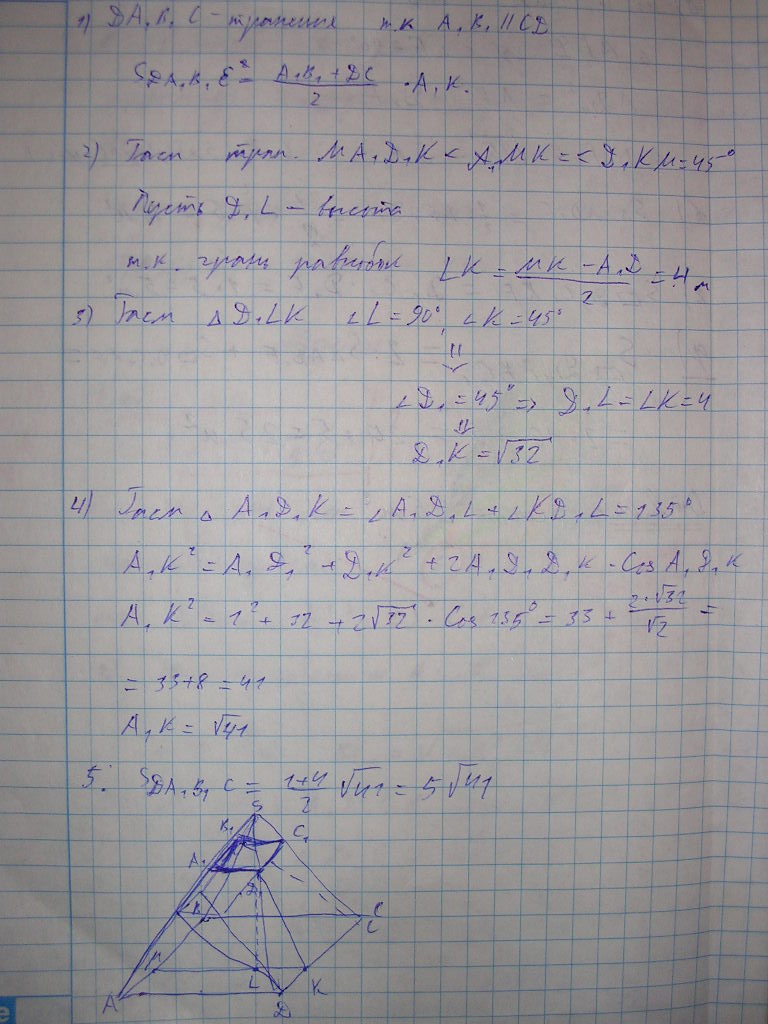 1) DA₁B₁C – трапеция т.к A₁B₁ || CD
S DA₁B₁C = (A₁B₁ + DC)/2 · A₁K.
2) Расм трап. MA₁D₁K < A₁MK = < D₁KM = 45°
Пусть D₁L – высота
т.к. трап равнобок LK = (MK – A₁D)/2 = 4 м
3) Расм △ D₁LK ∠L = 90°, ∠K = 45°
⇓
∠D₁ = 45° ⇒ D₁L = LK = 4
⇓
D₁K = √32
4) Расм △ A₁D₁K = ∠A₁D₁L + ∠KD₁L = 135°
A₁K² = A₁D₁² + D₁K² + 2A₁D₁D₁K · Cos A₁D₁K
A₁K² = 1² + 32 + 2√32 · Cos 135° = 33 + (2·√32)/√2 =
= 33+8 = 41
A₁K = √41
5. S DA₁B₁C = (1+4)/2 √41 = 5√41
S
B₁ C₁
A₁
D
B C
C
M L K
A D